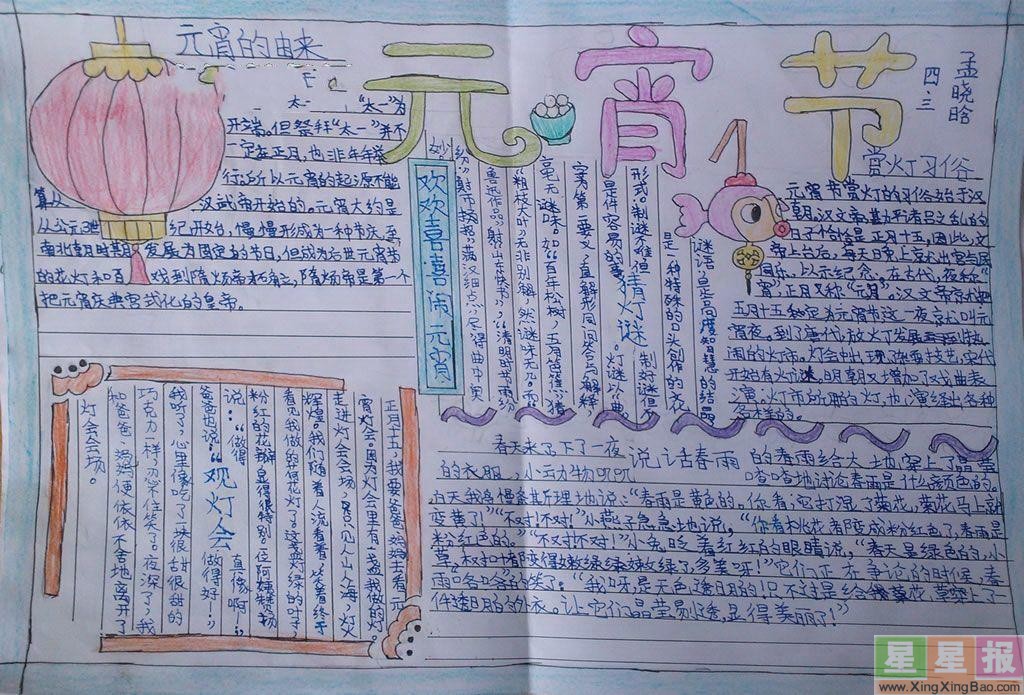 元宵节
孟晓晗
四.三
元宵的由来
太一 “太一”为
开端。但祭拜“太一”并不
一定在正月，也非年年举
行。所以元宵的起源不能
算从 汉武帝开始的。元宵大约是
从公元 纪开始，慢慢形成为一种节庆，至
南北朝时期 发展为固定的节日，但成为后世元宵节
的花灯和百 戏到隋炀帝才有，隋炀帝是第一个
把元宵庆典宫式化的皇帝。
欢欢喜喜闹元宵
猜灯谜
谜语，是高度知慧的结晶
是一种特殊的口头创作的文
形式。制谜不难，但 制玄谜但
是件容易的事 灯谜以“曲
毫无谜味。如：“百年松树，五月芭蕉”猜
“粗枝大叶”，无非别解，然谜味无力。而
鲁迅作品，射山东快书”，“清明时节雨纷
纷，射市招我”，“满汉细点”，尽得曲中奥
妙
赏灯习俗
元宵节赏灯的习俗始于汉
朝。汉文帝
日子恰恰是正月十五，因此，文
帝上台后，每天日晚上京术出宫与民
同乐，以示纪念。在古代，夜称“
宵”，正月又称“元月”。汉文帝京术把
五月十五种定为元宵节这一夜京术叫元
宵夜。到了唐代，放灯发展
闹的灯市。灯会中出现了杂耍技艺，宋代
开始有火灯谜，明朝又增加了戏曲表
演。灯市所用的灯，也，演经出各种
各样的。
“观灯会”
正月十五，我要和爸爸妈妈去看元
宵灯会。因为灯会里有一盏我做的灯
走进灯会会场，只见人山人海，灯火
辉煌。我们随着人流看着，笑着终于
看见我做的荷花灯了。这盏灯绿的叶子
粉红的花瓣显得很特别，但阿姨赞扬
说：“做得 直像啊！”
爸爸也说 做得好！”
我听了，心里像吃了一块很甜很甜的
巧克力一样，忍不住笑了。夜深了，我
和爸爸，妈妈便依依不舍地离开了
灯会会场。
说话春雨
春天来了，下了一夜 的春雨给大地穿上了晶莹
的衣服，小云力物叽叽 喳喳地讨论春雨是什么颜色的。
白天我鸟慢慢斯理地说：“春雨是黄色的。你看，它打湿了菊花，菊花马上就
变黄了！”“不对！不对！”小燕子急急地说，“你看桃花都变成粉红色了，春雨是
粉红色的。”“不对！不对！”小兔眨着红红的眼睛说，“春天是绿色的，小
草，树叶都变得嫩绿嫩绿了，多美呀！”它们正在争论的时候，春
雨咯咯的笑了：“我呀，是无色透明的！只不过是给微菊花，草穿上了一
件透明的外衣。让它们晶莹易透，显得美丽了！”
星星报
www.XingXingBao.com